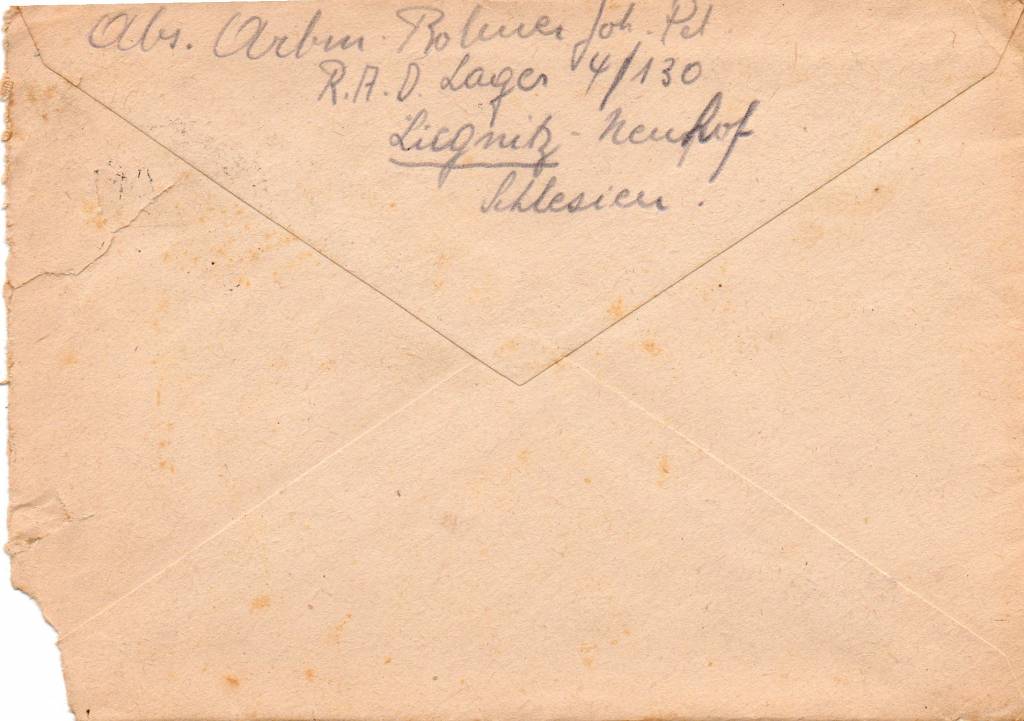 Abs. Arbm. Bohmer Joh. Pet.
R.A.D. Lager 4/130
Liegnitz - Neuhof
Schlesien.